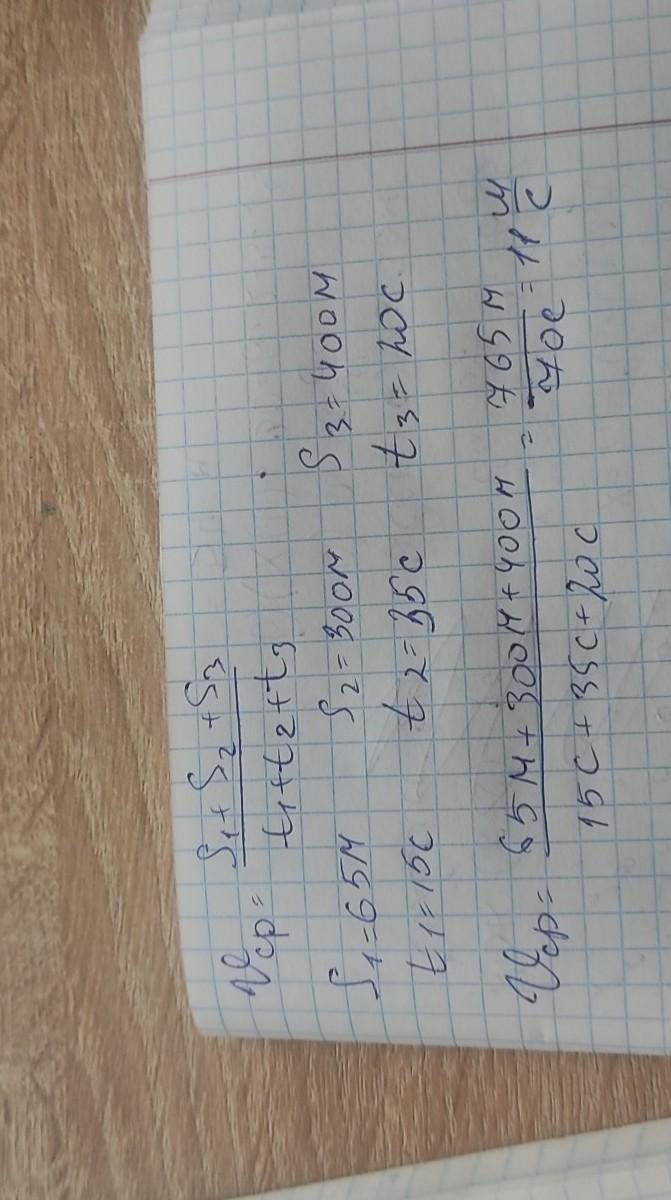 υср = S1 + S2 + S3 / t1 + t2 + t3
S1 = 65м S2 = 300м S3 = 400м
t1 = 15с t2 = 35с t3 = 20с
υср = 65м + 300м + 400м / 15с + 35с + 20с = 765м / 70с = 11 м/с